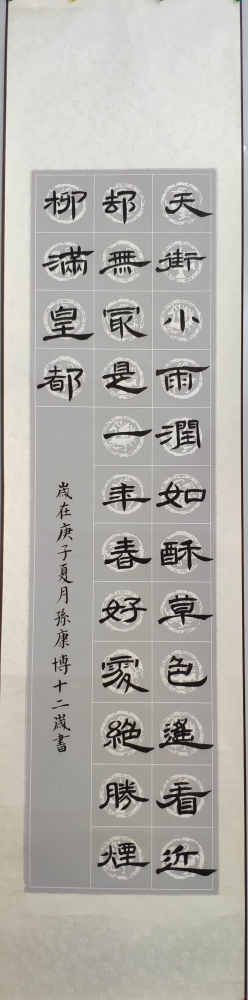 天街小雨潤如酥草色遙看近
却無冣是一年春好處絕勝煙
柳滿皇都
歲在庚子夏月孫康博十二歲書